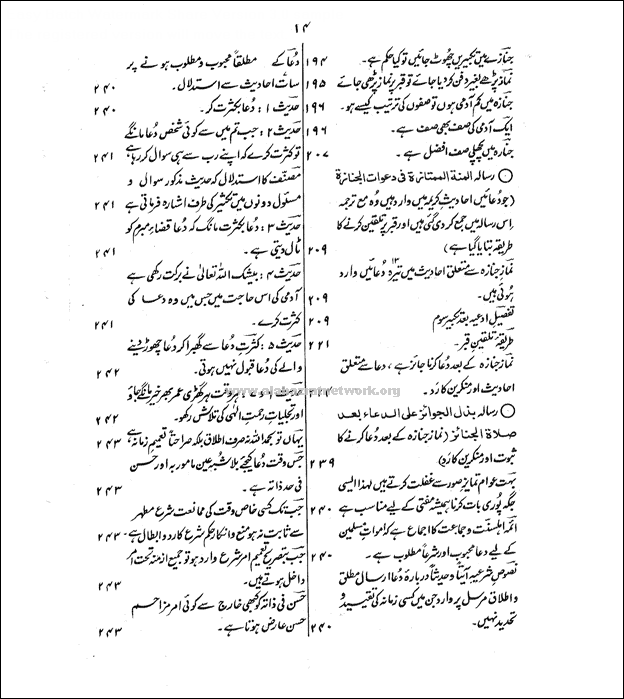 ۱۴
جنازے میں تکبیریں چھوٹ جائیں تو کیا حکم ہے۔ ۱۹۴
نماز پڑھے بغیر دفن کر دیا جائے تو قبر پر نماز پڑھی جائے ۱۹۵
جنازہ میں کم آدمی ہوں تو صفوں کی ترتیب کیسے ہو۔ ۱۹۶
ایک آدمی کی صف بھی صف ہے۔ ۱۹۶
جنازہ میں پچھلی صف افضل ہے۔ ۲۰۷
○ رسالہ المنة الممتازة فی دعوات الجنازة
(جو دعائیں احادیثِ کریمہ میں وارد ہیں وہ مع ترجمہ
اس رسالہ میں جمع کر دی گئی ہیں اور قبر پر تلقین کرنے کا
طریقہ بتایا گیا ہے) ۲۰۹
نمازِ جنازہ سے متعلق احادیث میں تیرہ ۱۳ دعائیں وارد
ہوئی ہیں۔ ۲۰۹
تفصیلِ ادعیہ بعد تکبیر سوم ۲۰۹
طریقہ تلقینِ قبر۔ ۲۲۱
نمازِ جنازہ کے بعد دعا کرنا جائز ہے، دعا سے متعلق
احادیث اور منکرین کا رَد۔
○ رسالہ بذل الجوائز علی الدعاء بعد
صلاة الجنائز (نماز جنازہ کے بعد دُعا کرنے کا
ثبوت اور منکرین کا رد) ۲۳۹
بہت عوام تمایز صور سے غفلت کرتے ہیں لہذا ایسی
جگہ پُوری بات کرنا ہمیشہ مفتی کے لیے مناسب ہے ۲۴۰
ائمہ اہلسنت و جماعت کا اجماع ہے کہ امواتِ مسلمین
کے لیے دعا محبوب اور شرعاً مطلوب ہے۔ ۲۴۰
نصوصِ شرعیہ آیتاً و حدیثاً دربارہ دُعا ارسال مطلق
و اطلاق مرسل پر وارد جن میں کسی زمانہ کی تقیید و
تحدید نہیں۔ ۲۴۰
دُعا کے مطلقاً محبوب و مطلوب ہونے پر
سات احادیث سے استدلال۔ ۲۴۰
حدیث ۱: دُعا بکثرت کر۔ ۲۴۰
حدیث ۲: جب تم میں سے کوئی شخص دعا مانگے
تو کثرت کرے کہ اپنے رب سے ہی سوال کر رہا ہے ۲۴۱
مصنّف کا استدلال کہ حدیث مذکور سوال و
مسئول دونوں میں تکثیر کی طرف اشارہ فرماتی ہے ۲۴۱
حدیث ۳: دُعا بکثرت مانگ کہ دُعا قضاءِ مبرم کو
ٹال دیتی ہے۔ ۲۴۱
حدیث ۴: بیشک اللہ تعالیٰ نے برکت رکھی ہے
آدمی کی اس حاجت میں جس میں وہ دعا کی
کثرت کرے۔ ۲۴۱
حدیث ۵: کثرتِ دُعا سے گھبرا کر دُعا چھوڑ دینے
والے کی دُعا قبول نہیں ہوتی۔ ۲۴۲
حدیث ۶ و ۷: ہر وقت ہر گھڑی عمر بھر خیر مانگے جاؤ
اور تجلیاتِ رحمتِ الٰہی کی تلاش رکھو۔ ۲۴۲
یہاں تو بحمد اللہ نہ صرف اطلاق بلکہ صراحتاً تعمیمِ زمانہ ہے ۲۴۳
جس وقت دُعا کیجئے بلاشبہ عین مامور بہ اور حسن
فی حد ذاتہ ہے۔ ۲۴۳
جب تک کسی خاص وقت کی ممانعت شرع مطہر
سے ثابت نہ ہو منع و انکار حکمِ شرع کا رد و ابطال ہے۔ ۲۴۳
جب بتصریح تعمیم امرِ شرع وارد ہو تو جمیع ازمنہ تحت امر
داخل ہوتے ہیں۔ ۲۴۳
حسن فی ذاتہٖ کو کبھی خارج سے کوئی امر مزاحم
حسن عارض ہوتا ہے۔ ۲۴۳
www.alahazratnetwork.org